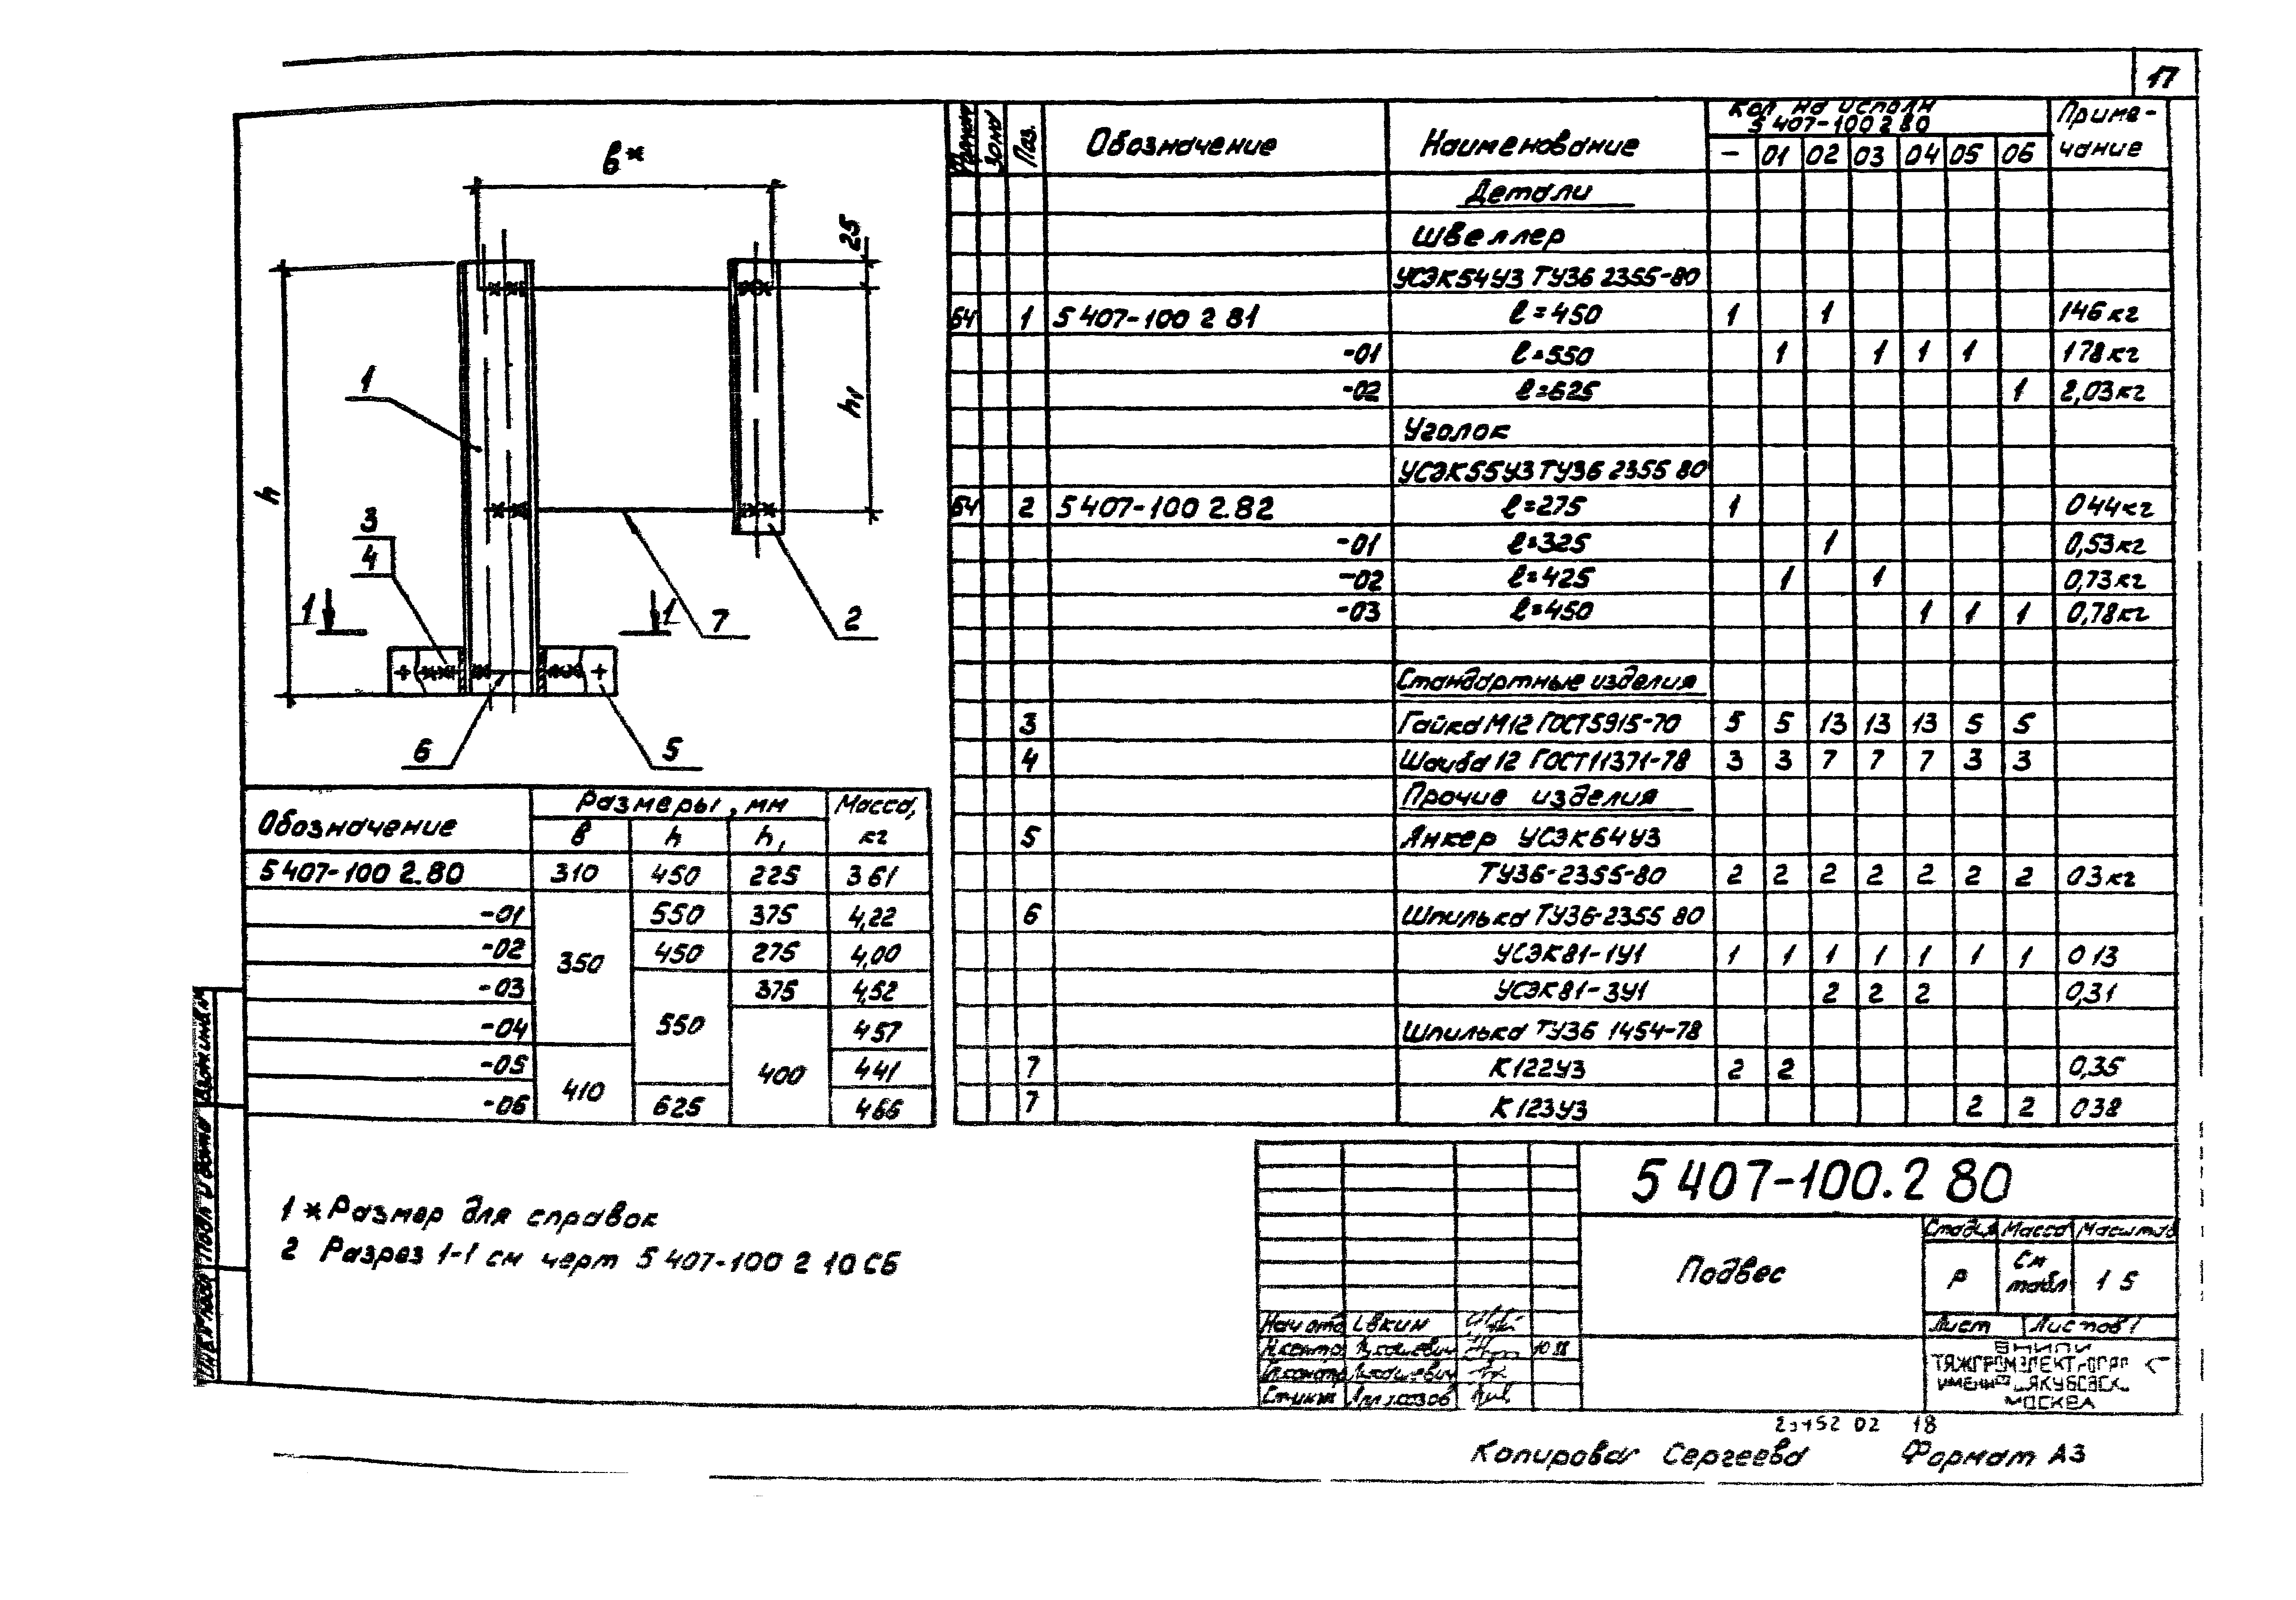 17
в*
25
h
h1
1
3
4
1
1
7
2
6
5
Обозначение
Размеры, мм
Масса, кг
в
h
h1
5 407-100 2.80 310 450 225 3 61
-01 350 550 375 4,22
-02 450 275 4,00
-03 550 375 4,52
-04 400 4 57
-05 410 4 41
-06 625 4 66
Формат Зона Поз. Обозначение Наименование Кол. на исполн 5 407-100 2 80 Приме-
чание
- 01 02 03 04 05 06
Детали
Швеллер
УСЭК54У3 ТУ36 2355-80
БЧ 1 5 407-100 2 81 ℓ=450 1 1 1 46 кг
-01 ℓ=550 1 1 1 1 1 78 кг
-02 ℓ=625 1 2,03 кг
Уголок
УСЭК55У3 ТУ36 2355 80
БЧ 2 5 407-100 2.82 ℓ=275 1 0 44 кг
-01 ℓ=325 1 0,53 кг
-02 ℓ=425 1 1 0,73 кг
-03 ℓ=450 1 1 1 0,78 кг
Стандартные изделия
3 Гайка М12 ГОСТ 5915-70 5 5 13 13 13 5 5
4 Шайба 12 ГОСТ 11371-78 3 3 7 7 7 3 3
Прочие изделия
5 Анкер УСЭК64У3
ТУ36-2355-80 2 2 2 2 2 2 2 0 3 кг
6 Шпилька ТУ36-2355 80
УСЭК81-1У1 1 1 1 1 1 1 1 0 13
УСЭК81-3У1 2 2 2 0,31
Шпилька ТУ36 1454-78
7 К122У3 2 2 0,35
7 К123У3 2 2 0 38
1 * Размер для справок
2 Разрез 1-1 см черт 5 407-100 2 10 СБ
5 407-100.2 80
Подвес
Стадия Масса Масштаб
Р См табл 1 5
Лист Листов 1
Нач отд
Н контр
10 88
ВНИПИ
ТЯЖПРОМЭЛЕКТРОПРОЕКТ
ИМЕНИ
МОСКВА
02 18
Копировал Сергеева Формат А3